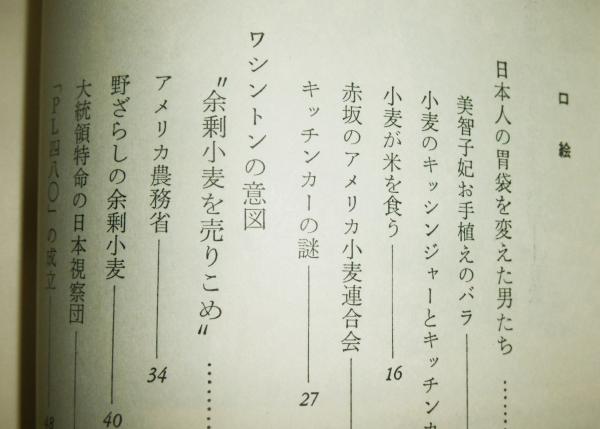 口絵
日本人の胃袋を変えた男たち…
美智子妃お手植えのバラ
小麦のキッシンジャーとキッチンカ
小麦が米を食う 16
赤坂のアメリカ小麦連合会
キッチンカーの謎 27
ワシントンの意図
〝余剰小麦を売りこめ〟…
アメリカ農務省 34
野ざらしの余剰小麦 40
大統領特命の日本視察団
「PL四八〇」の成立 48